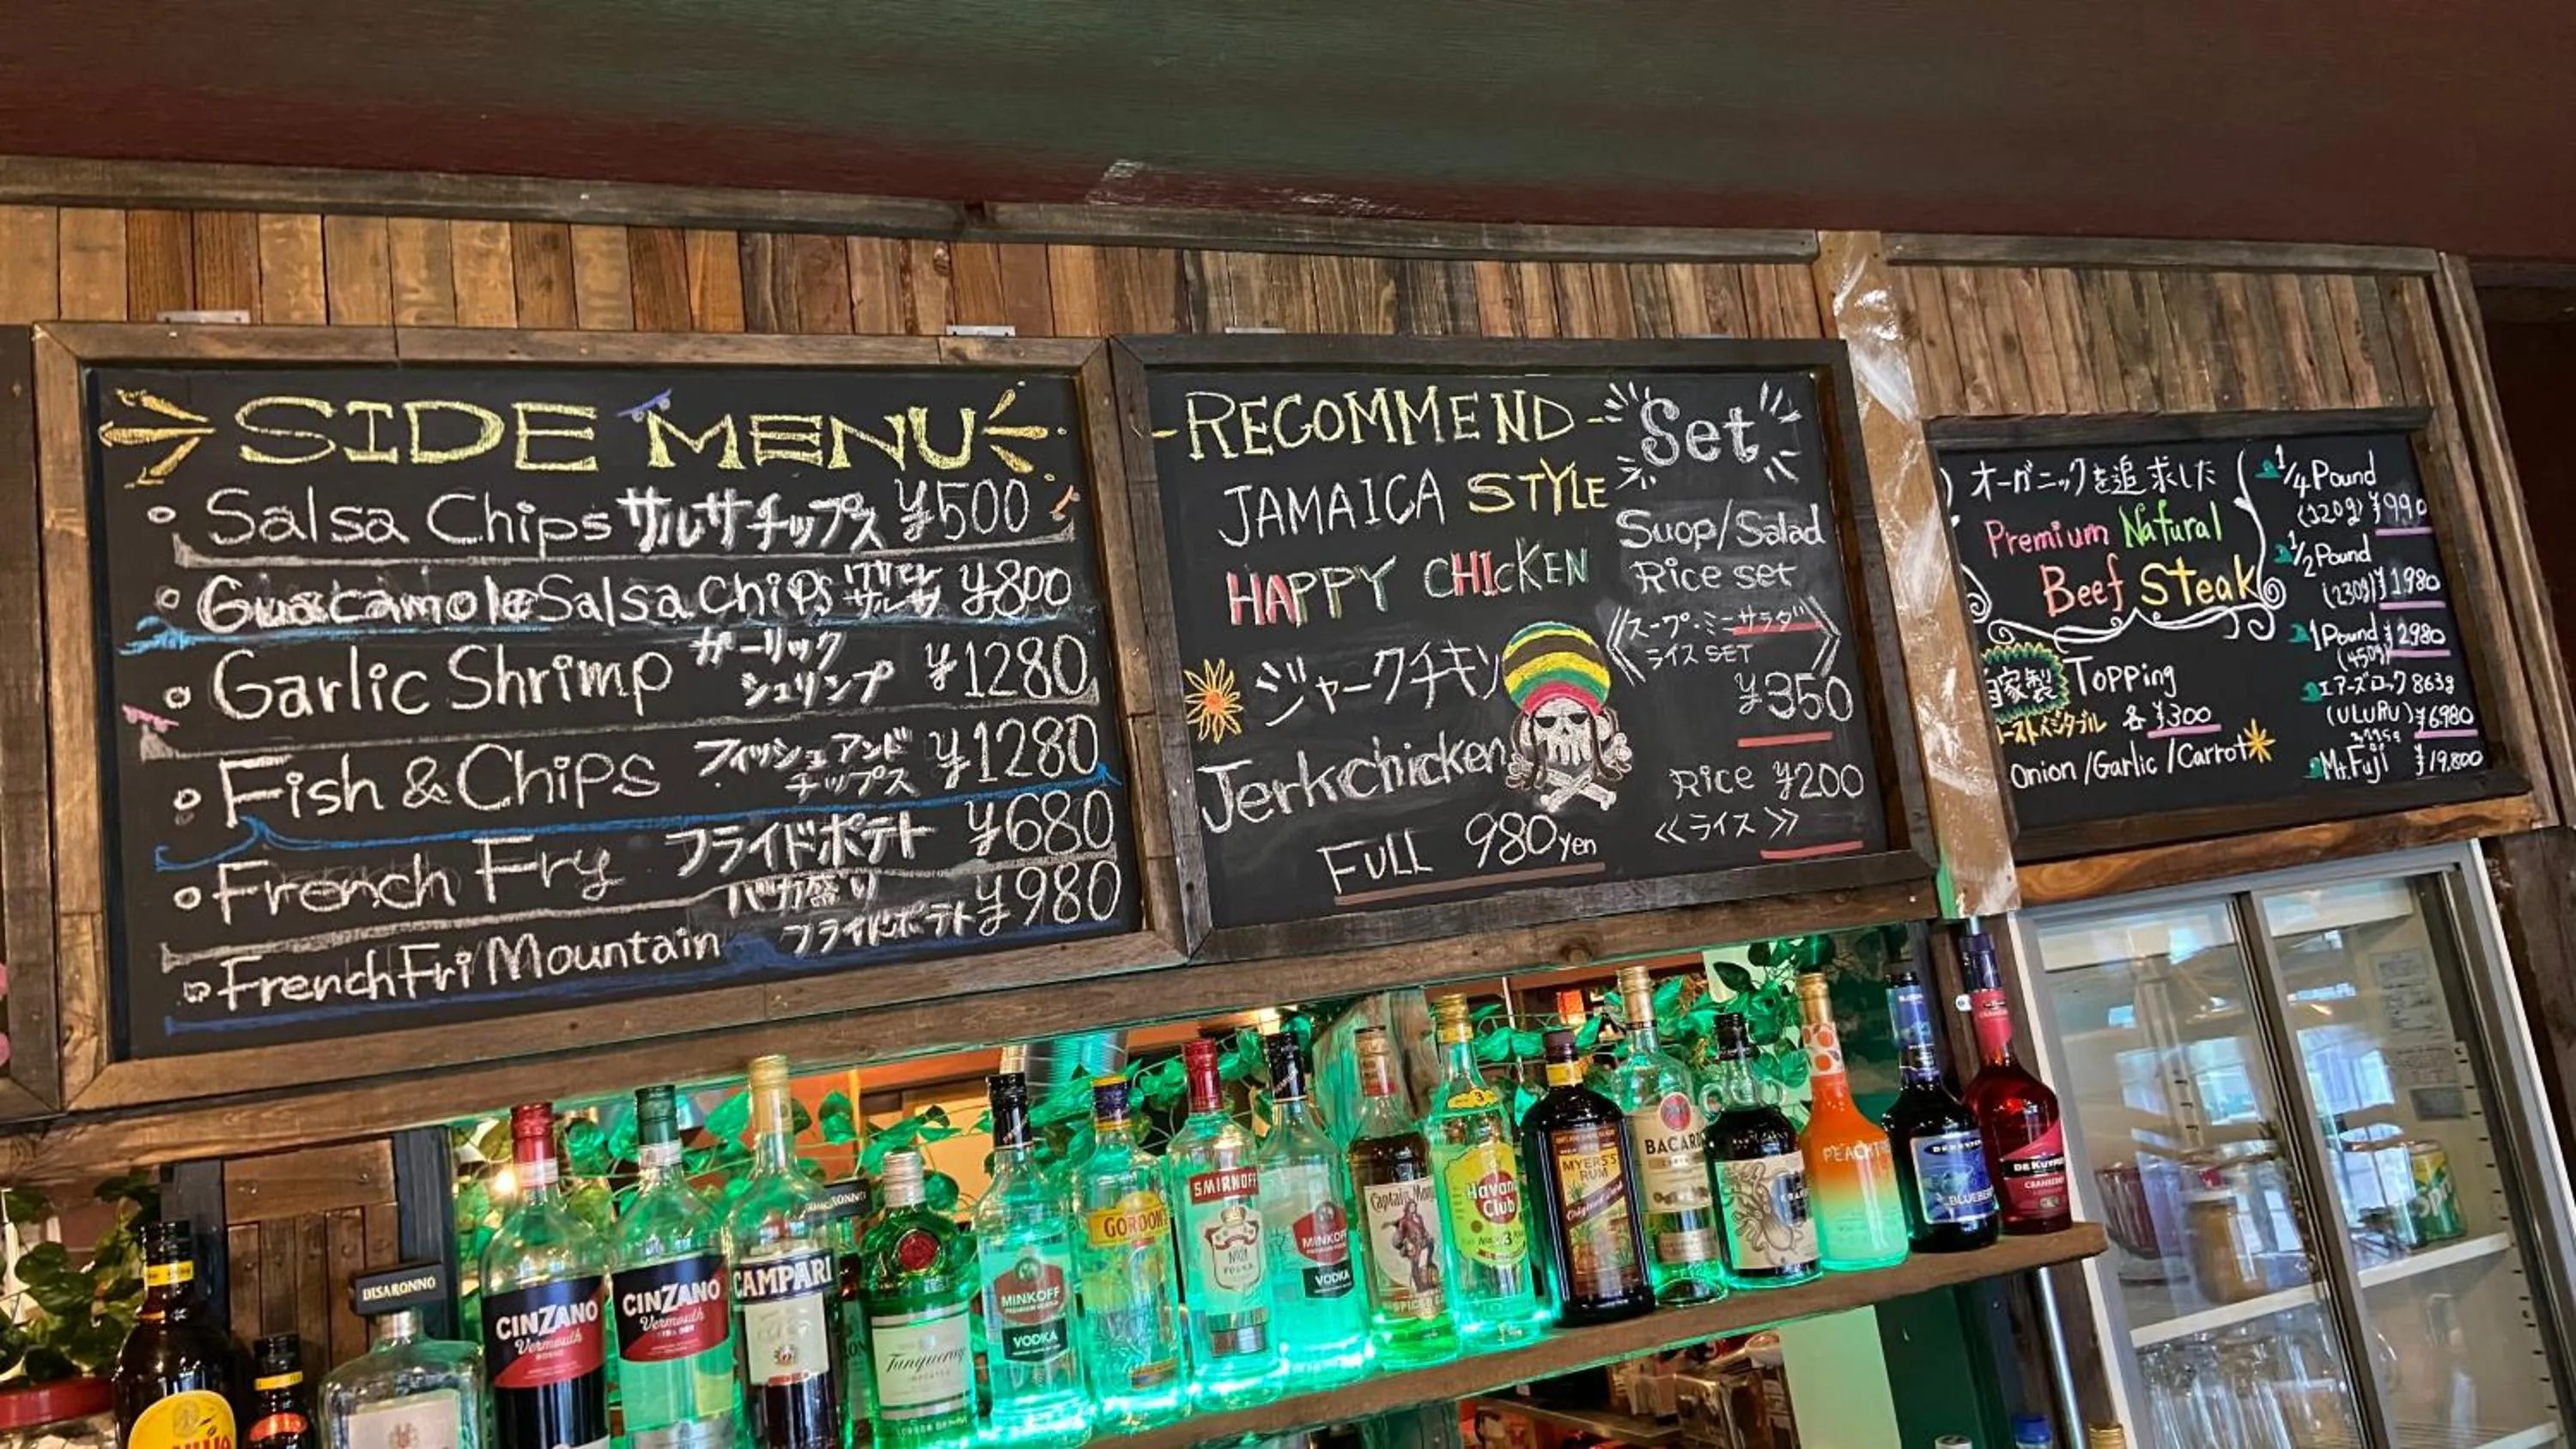 SIDE MENU
Salsa Chips サルサチップス ¥500
Guacamole Salsa Chips ワカモレ サルサ ¥800
Garlic Shrimp ガーリック シュリンプ ¥1280
Fish & Chips フィッシュアンド チップス ¥1280
French Fry フライドポテト ¥680
French Fri Mountain バカ盛り フライドポテト ¥980
-RECOMMEND-
JAMAICA STYLE
HAPPY CHICKEN
ジャークチキン
Jerkchicken
FULL 980yen
Set
Suop/Salad
Rice set
スープ・ミニサラダ
ライス SET
¥350
Rice ¥200
≪ライス≫
オーガニックを追求した
Premium Natural
Beef Steak
自家製 Topping
ーストベジタブル 各¥300
Onion/Garlic/Carrot
1/4 Pound
(120g) ¥990
1/2 Pound
(230g) ¥1980
1 Pound ¥2980
(450g)
エアーズロック 863g
(ULURU) ¥6980
Mt.Fuji ¥19,800
DISARONNO
CINZANO
Vermouth
ROSSO
CINZANO
Vermouth
CAMPARI
Tanqueray
IMPORTED
MINKOFF
VODKA
GORDON'S
SMIRNOFF
VODKA
MINKOFF
VODKA
Captain Morgan
SPICED
Havana
Club
3
MYERS'S
RUM
BACARDI
PEACHT
BLUEBER
DE KUYPER
CRANBERRY